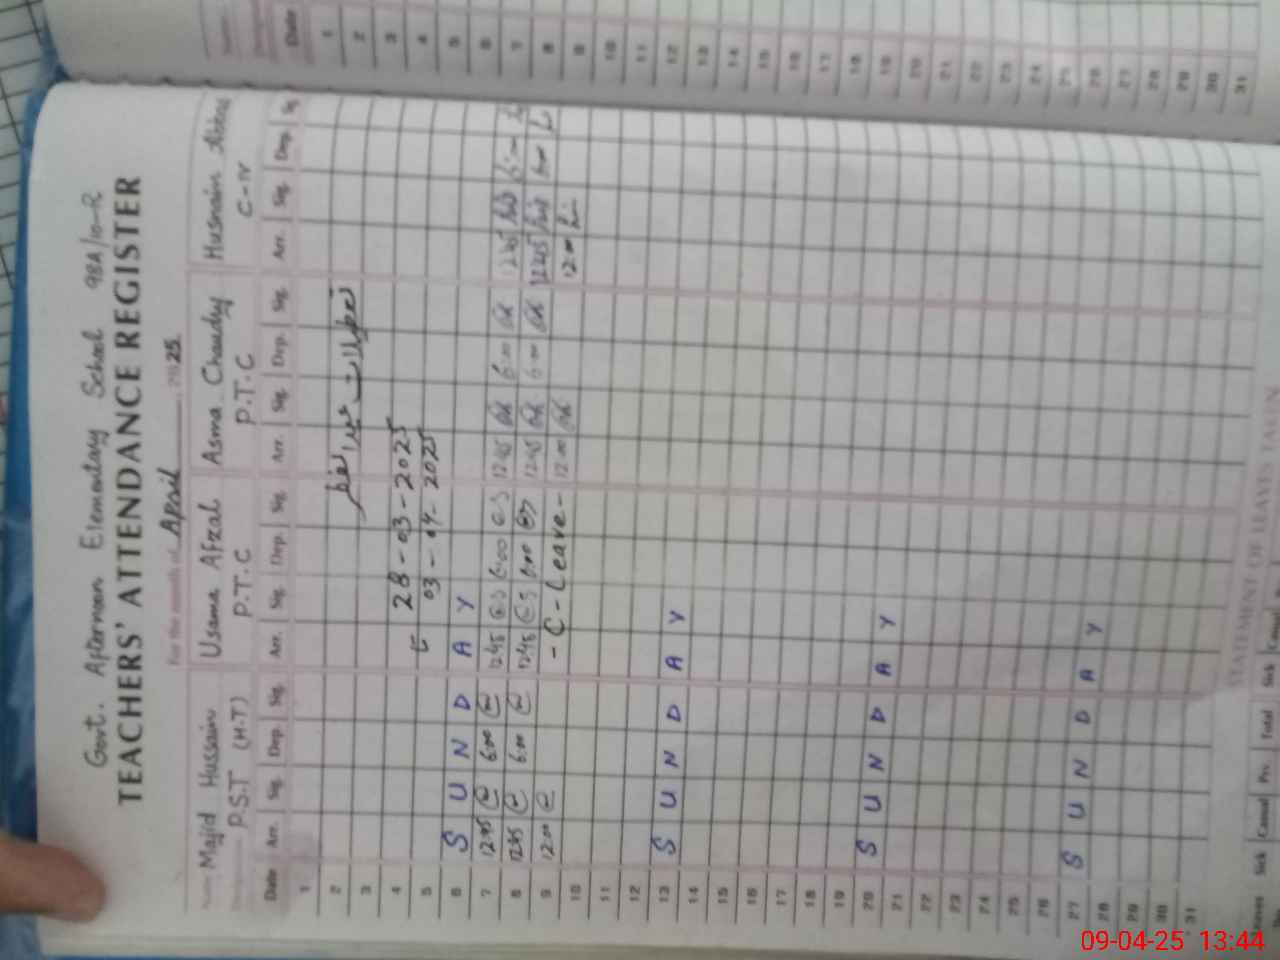 Govt. Afternoon Elementary School 98A/10-R
TEACHERS' ATTENDANCE REGISTER
For the month of April 2025
Majid Hussain Usama Afzal Asma Chaudy Husnain Abbas
P.S.T (H.T) P.T.C P.T.C C-IV
Date Arr. Sig. Dep. Sig. Arr. Sig. Dep. Sig. Arr. Sig. Dep. Sig. Arr. Sig. Dep.
1
2 تعطیلات عید الفطر
3
4 28-03-2025
5 03-04-2025
6 S U N D A Y
7 12:45 6:00 12:45 6:00 12:45 6:00 12:45 6:00
8 12:45 6:00 12:45 6:00 12:45 6:00 12:45 6:00
9 12:00 -C-Leave- 12:00 12:00
10
11
12
13 S U N D A Y
14
15
16
17
18
19
20 S U N D A Y
21
22
23
24
25
26
27 S U N D A Y
28
29
30
31
STATEMENT OF LEAVES TAKEN
Sick Casual Prv. Total Sick
Date
1
2
3
4
5
6
7
8
9
10
11
12
13
14
15
16
17
18
19
20
21
22
23
24
25
26
27
28
29
30
31
09-04-25 13:44